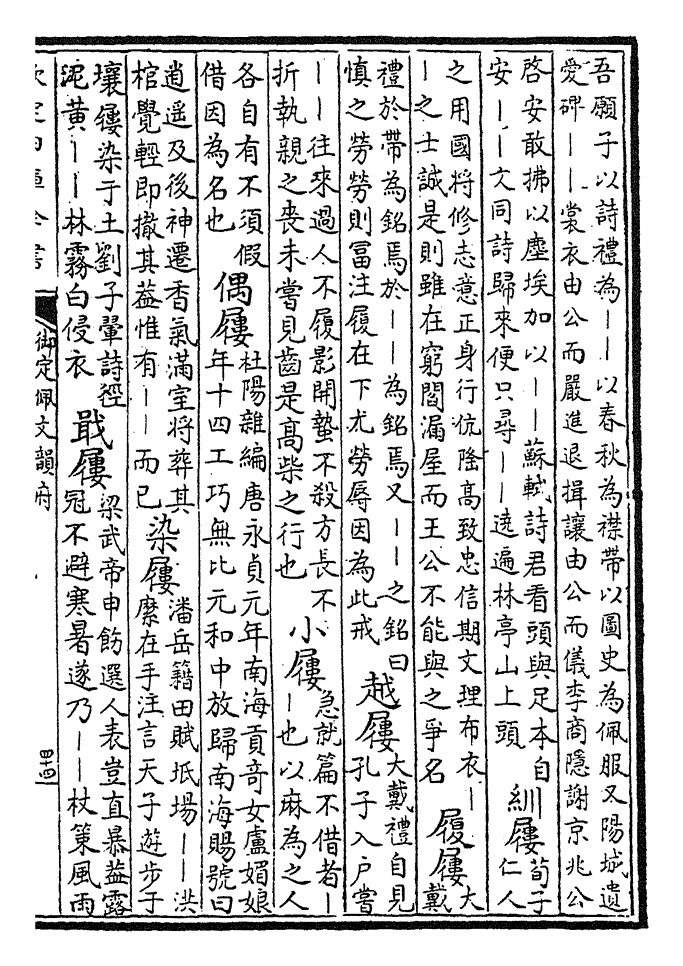 吾願子以詩禮為丨丨以春秋為襟帶以圖史為佩服又陽城遺
愛碑丨丨裳衣由公而嚴進退揖讓由公而儀李商隱謝京兆公
啓安敢拂以塵埃加以丨丨蘇軾詩君看頭與足本自
安丨丨文同詩歸來便只尋丨丨遶遍林亭山上頭
紃屨
荀子
仁人
之用國將修志意正身行伉隆高致忠信期文理布衣丨
丨之士誠是則雖在窮閻漏屋而王公不能與之爭名
履屨
大
戴
禮於帶為銘焉於丨丨為銘焉又丨丨之銘曰
慎之勞勞則富注履在下尤勞辱因為此戒
越屨
大戴禮自見
孔子入戶嘗
丨丨往來過人不履影開蟄不殺方長不
折執親之喪未嘗見齒是高柴之行也
小屨
急就篇不借者丨
丨也以麻為之人
各自有不須假
借因為名也
偶屨
杜陽雜編唐永貞元年南海貢奇女盧媚娘
年十四工巧無比元和中放歸南海賜號曰
逍遥及後神遷香氣滿室將葬其
棺覺輕即撤其葢惟有丨丨而已
染屨
潘岳籍田賦坻場丨丨洪
縻在手注言天子遊步于
壤屨染于土劉子翬詩徑
泥黄丨丨林霧白侵衣
戢屨
梁武帝申飭選人表豈直暴葢露
冠不避寒暑遂乃丨丨杖策風雨
欽定四庫全書
御定佩文韻府
四十四